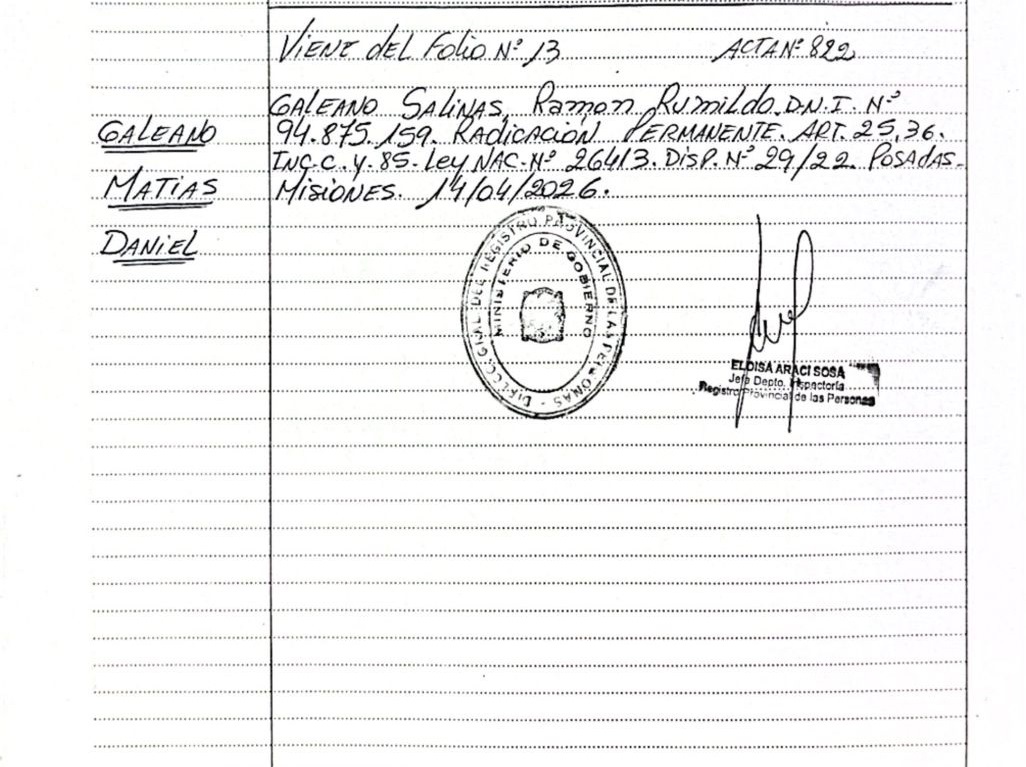 Viene del Folio Nº 13
ACTA Nº 822
GALEANO
MATIAS
DANIEL
GALEANO SALINAS, Ramon Rumildo. D.N.I. Nº
94.875.159. RADICACIÓN PERMANENTE. ART. 25, 36.
INC-C. Y. 85. Ley NAC. Nº 26413. DISP. Nº 29/22. POSADAS-
MISIONES. 14/04/2026.
DIRECC. GRAL. DEL REGISTRO PROVINCIAL DE LAS PERSONAS -
MINISTERIO DE GOBIERNO
ELOISA ARACI SOSA
Jefa Depto. Inspectoría
Registro Provincial de las Personas